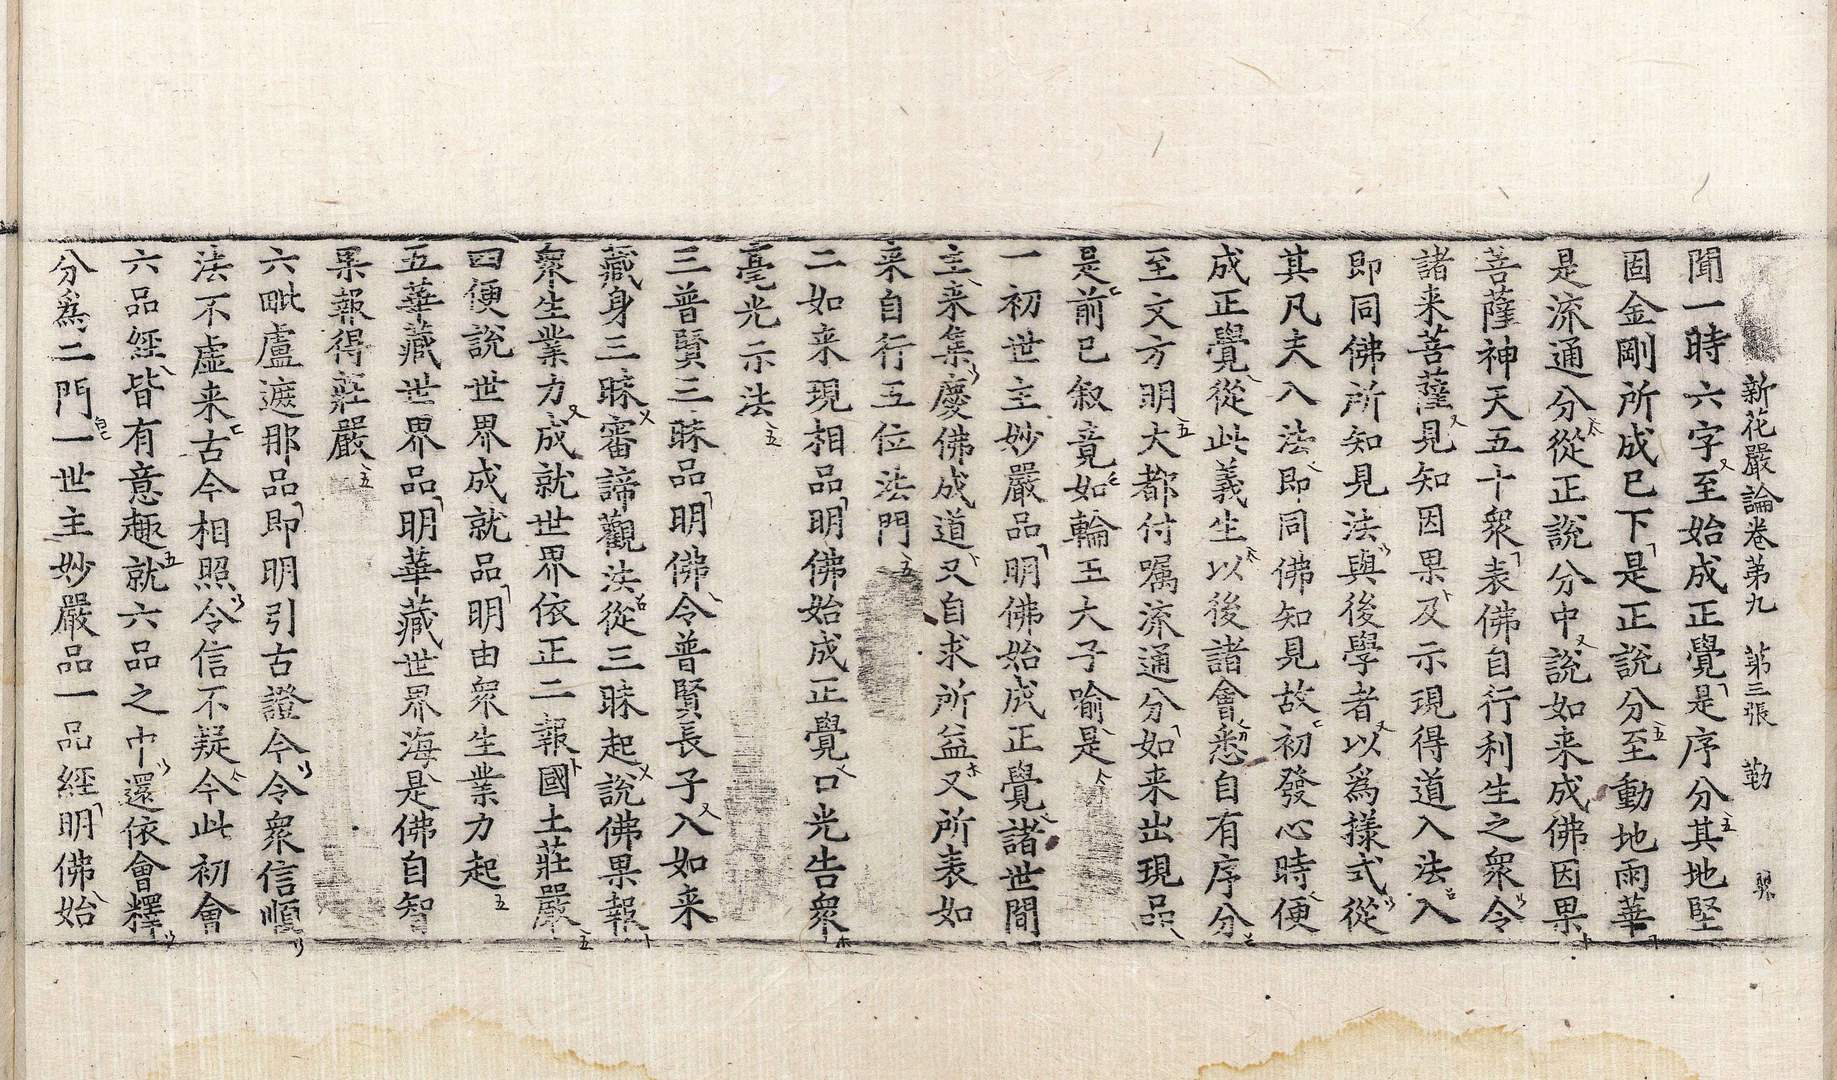 新花嚴論卷苐九　苐三張　勤
聞一時六字至始成正覺是序分其地堅
固金剛所成已下是正說分至動地雨華
是流通分從正說分中說如来成佛因果
菩薩神天五十衆表佛自行利生之衆令
諸来菩薩見知因果及示現得道入法入
即同佛所知見法與後學者以爲樣式從
其凡夫入法即同佛知見故初發心時便
成正覺從此義生以後諸會悉自有序分
至文方明大都付囑流通分如来出現品
是前已叙竟如輪王大子喻是
一初世主妙嚴品明佛始成正覺諸世間
主来集慶佛成道又自求所益又所表如
来自行五位法門
二如来現相品明佛始成正覺口光告衆
毫光示法
三普賢三昧品明佛令普賢長子入如来
藏身三昧審諦觀法從三昧起說佛果報
衆生業力成就世界依正二報國土莊嚴
四便說世界成就品明由衆生業力起
五華藏世界品明華藏世界海是佛自智
果報得莊嚴
六毗盧遮那品即明引古證今令衆信順
法不虛来古今相照令信不疑今此初會
六品經皆有意趣就六品之中還依會釋
分爲二門一世主妙嚴品一品經明佛始